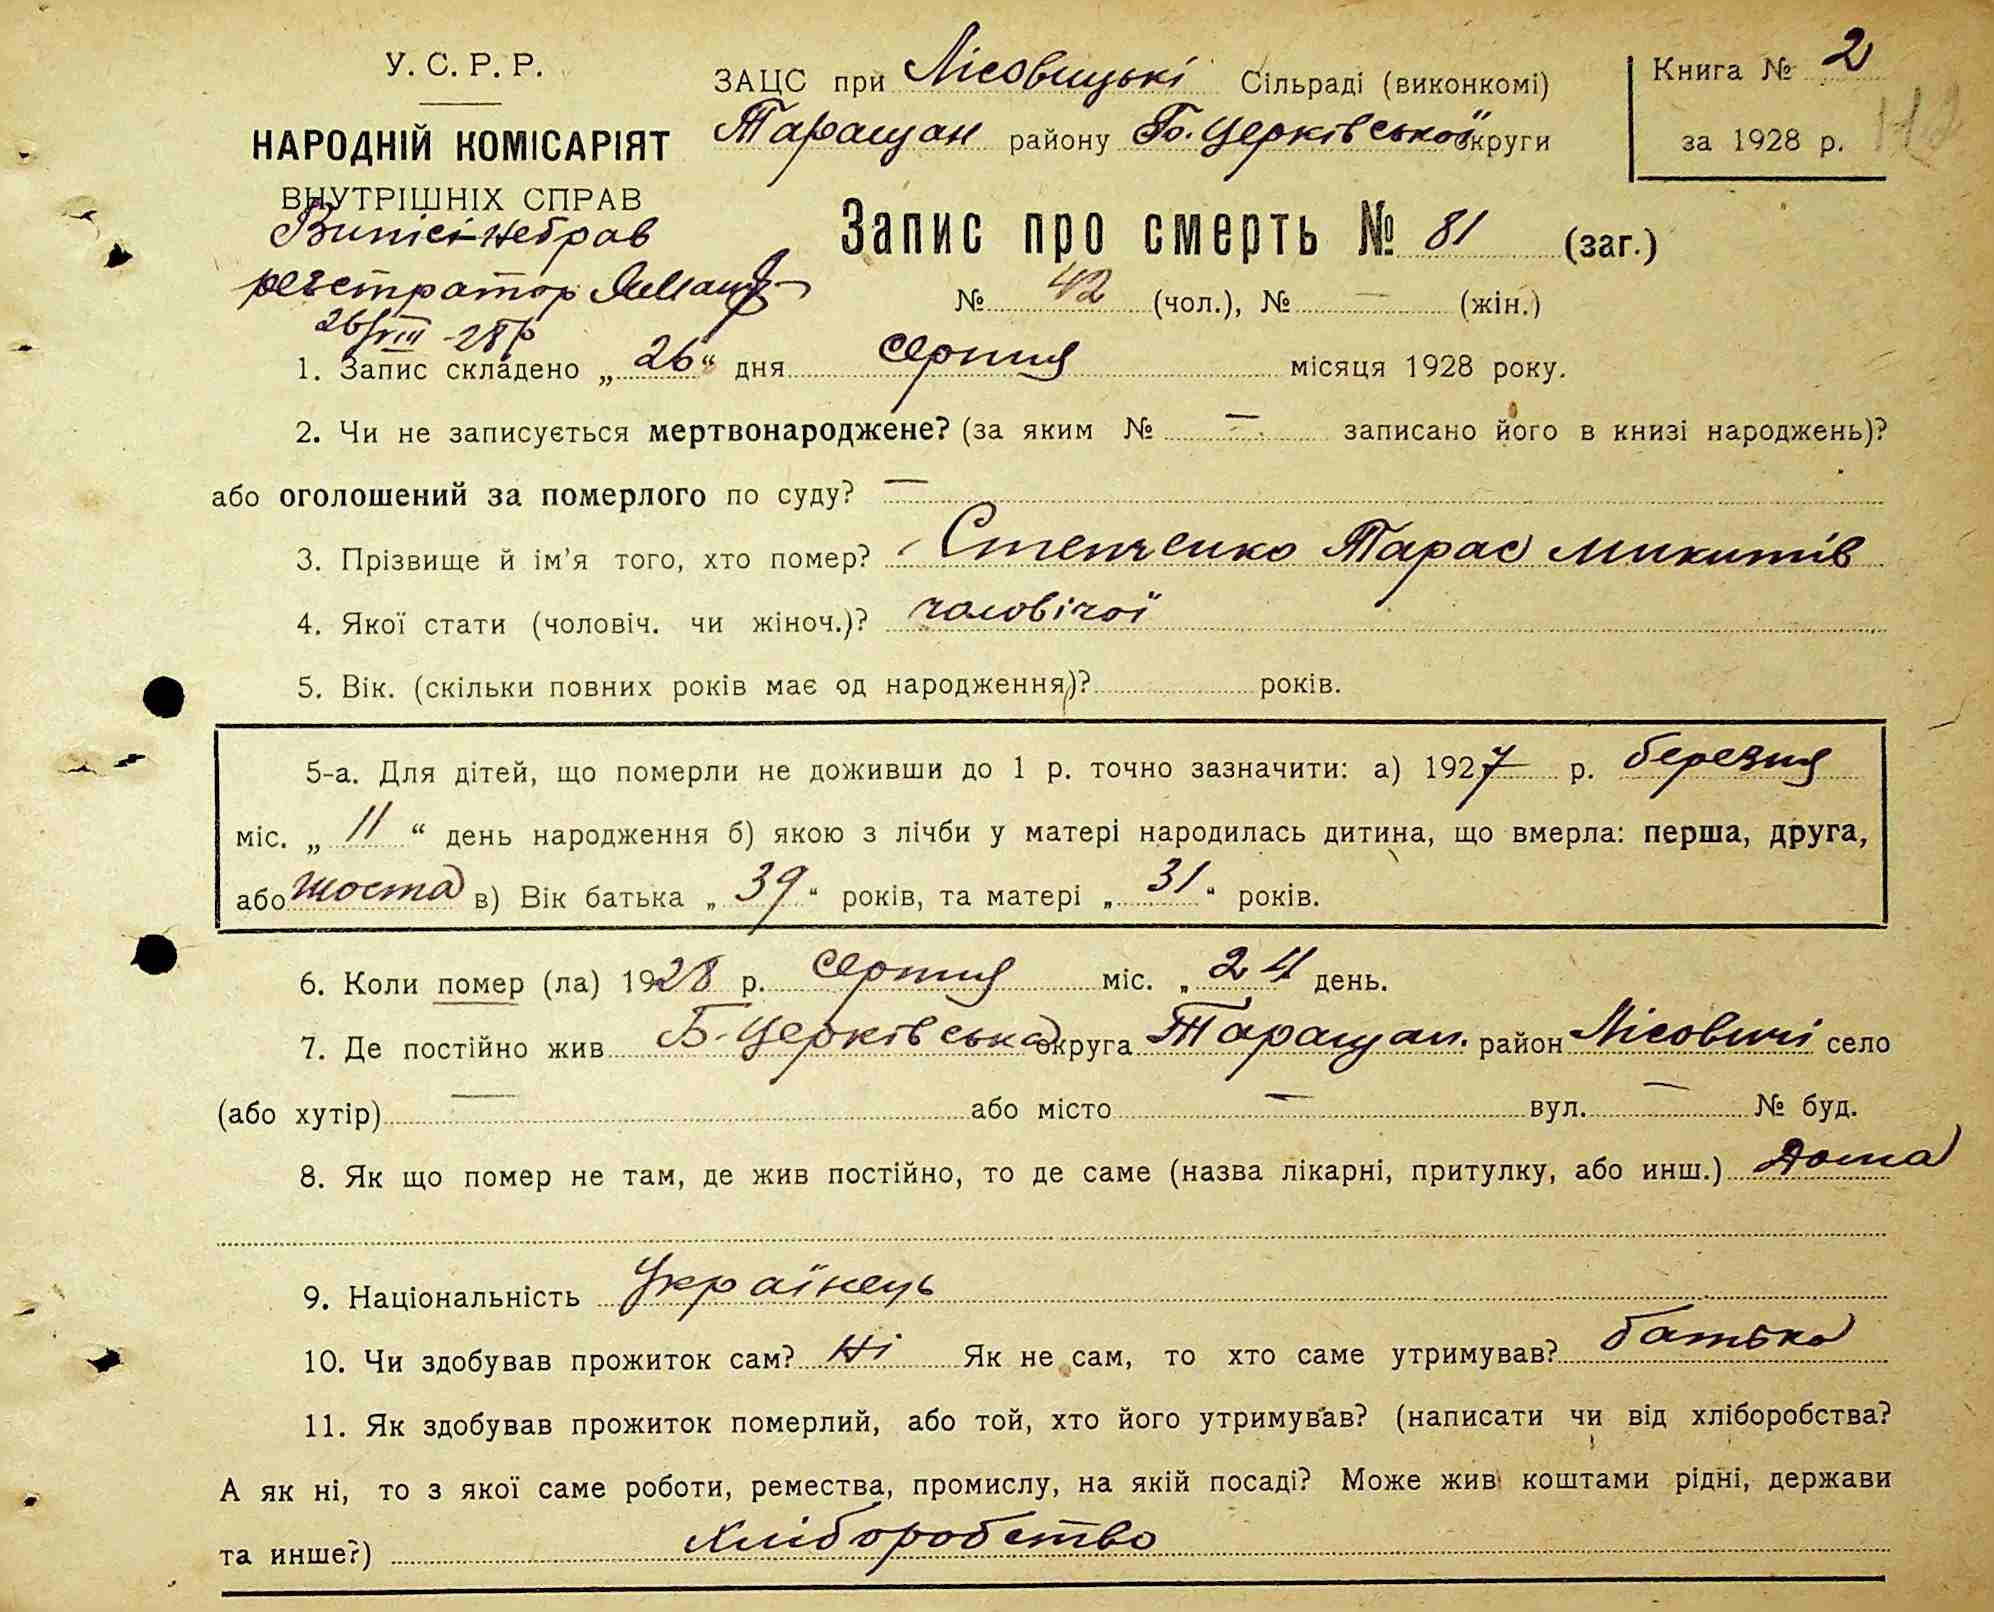 У. С. Р. Р.
НАРОДНІЙ КОМІСАРІЯТ
ВНУТРІШНІХ СПРАВ
Випісі небрав
реєстратор
26/VIII-28р
ЗАЦС при Лісовицькі Сільраді (виконкомі)
Таращан району Б. Церківської округи
Книга № 2
за 1928 р.
Запис про смерть № 81 (заг.)
№ 42 (чол.), № — (жін.)
1. Запис складено „26“ дня серпня місяця 1928 року.
2. Чи не записується мертвонароджене? (за яким № — записано його в книзі народжень)?
або оголошений за померлого по суду? —
3. Прізвище й ім’я того, хто помер? Степченко Тарас Микитів
4. Якої стати (чоловіч. чи жіноч.)? чоловічої
5. Вік. (скільки повних років має од народження)? років.
5-а. Для дітей, що померли не доживши до 1 р. точно зазначити: а) 1927 р. березня
міс. „11“ день народження б) якою з лічби у матері народилась дитина, що вмерла: перша, друга,
або шоста в) Вік батька „39“ років, та матері „31“ років.
6. Коли помер (ла) 1928 р. серпня міс. „24 день.
7. Де постійно жив Б-Церківська округа Таращан. район Лісовичі село
(або хутір) — або місто — вул. — № буд.
8. Як що помер не там, де жив постійно, то де саме (назва лікарні, притулку, або инш.) дома
9. Національність Українець
10. Чи здобував прожиток сам? Ні Як не сам, то хто саме утримував? батько
11. Як здобував прожиток померлий, або той, хто його утримував? (написати чи від хліборобства?
А як ні, то з якої саме роботи, ремества, промислу, на якій посаді? Може жив коштами рідні, держави
та инше?) хліборобство